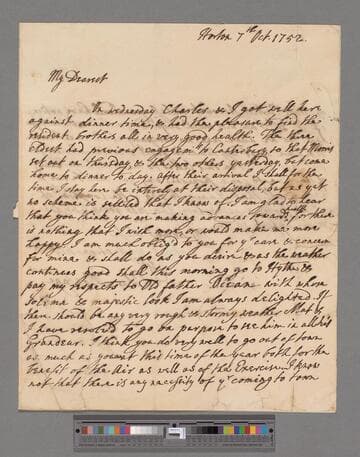 Horton 7th Oct. 1752.
My Dearest
On wednesday Charles & I got well here
against dinner time, & had the pleasure to find the
resident brothers all in very good health. The three
eldest had previous engagemts to Canterbury so that Morris
set out on thursday & the two others yesterday, but come
home to dinner to day. after their arrival I shall for the
time I stay here be entirely at their disposal, but as yet
no scheme is settled that I know of. I am glad to hear
that you think you are making advances towards for there
is nothing that I wish more, or would make me more
happy. I am much obliged to you for yr care & concern
for mine & shall do as you desire & as the weather
continues good shall this morning go to Hythe &
pay my respects to Old father Ocean with whose
Solemn & majestic look I am always delighted. If
there should be any very rough & stormy weather
I have resolved to go on purpose to see him in all his
Grandeur. I think you do very well to go out of town
as much as you can at this time of the year both for the
benefit of the Air as well as of the Exercise. I know
not that there is any necessity of yr coming to town